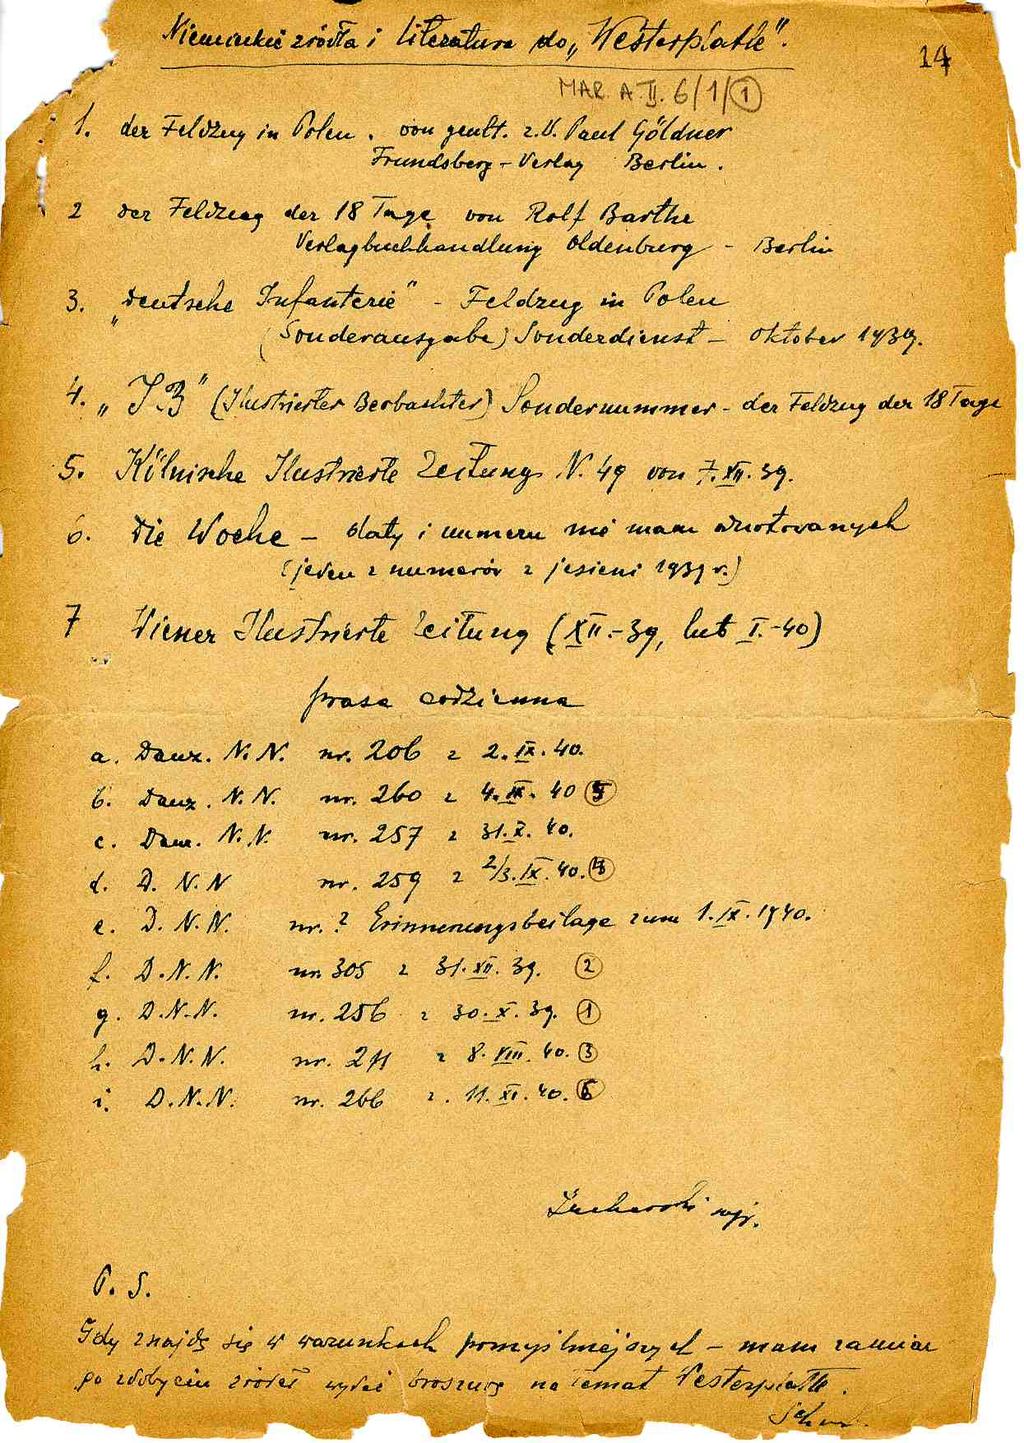 Niemieckie źródła i literatura do „Westerplatte".
14
MAR. A. II. 6/1/①
1. der Feldzug in Polen. von genlt. z.V. Paul Göldner
Frundsberg - Verlag Berlin.
2 der Feldzug der 18 Tage von Rolf Barthe
Verlagbuchhandlung Oldenburg - Berlin
3. „Deutsche Infanterie" - Feldzug in Polen
(Sonderausgabe) Sonderdienst - Oktober 1939.
4. „J.B" (Ilustrierter Beobachter) Sondernummer - der Feldzug der 18 Tage
5. Kölnische Ilustrierte Zeitung N. 49 von 7. XII. 39.
6. Die Woche - daty i numeru nie mam adnotowanych
(jeden z numerów z jesieni 1939 r.)
7 Wiener Ilustrierte Zeitung (XII.-39, lub I.-40)
prasa codzienna
a. Danz. N. N. nr. 206 z 2. IX. 40.
b. Danz. N. N. nr. 260 z 4. IX. 40 ⑤
c. Danz. N. N. nr. 257 z 31. X. 40.
d. D. N. N nr. 259 z 2/3. IX. 40. ④
e. D. N. N. nr. ? Erinnerungsbeilage zum 1. IX. 1940.
f. D. N. N. nr 305 z 31. XII. 39. ②
g. D. N. N. nr. 256 z 30. X. 39. ①
h. D. N. N. nr. 211 z 8. VIII. 40. ③
i. D. N. N. nr. 266 z. 11. XI. 40. ⑥
Sucharski mjr.
P. S.
Gdy znajdę się w warunkach pomyślniejszych - mam zamiar
po zdobyciu źródeł wydać broszurę na temat Westerplatte.